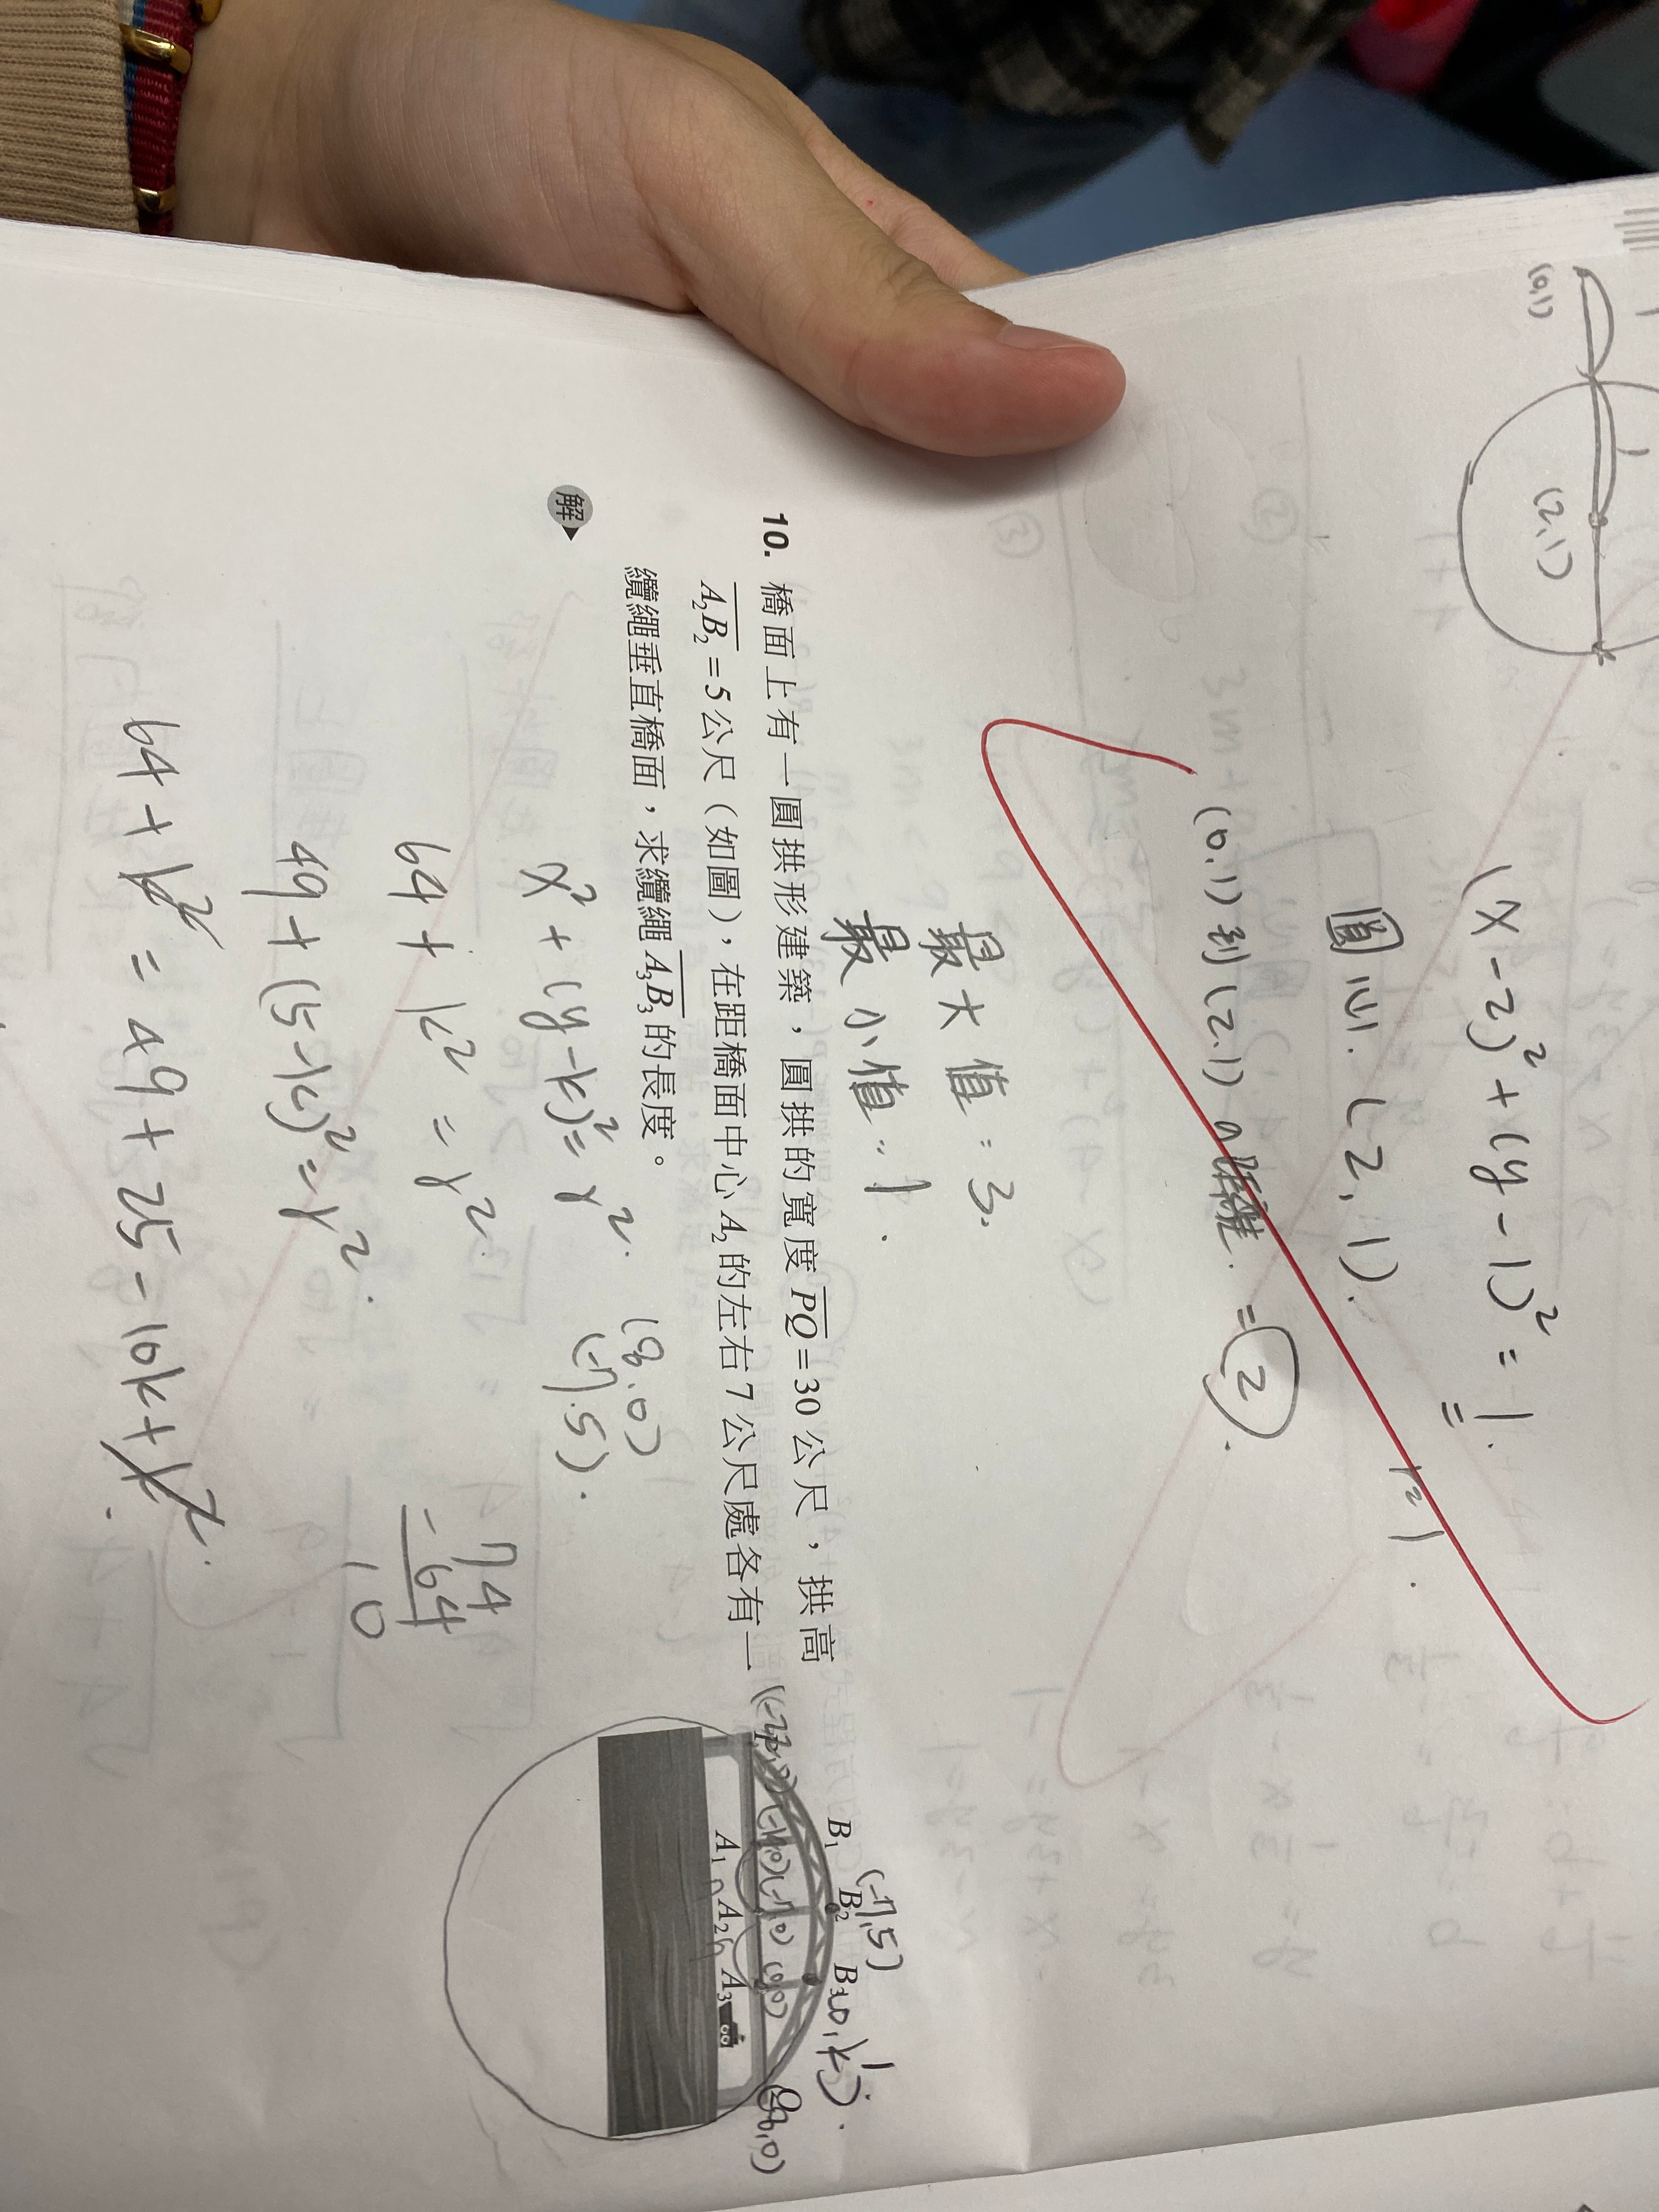 (0,1)
(2,1)
(x-2)²+(y-1)²=1.
圓心.(2,1).
r=1.
(0,1)到(2,1)
=2.
最大值=3.
最小值=1.
10. 橋面上有一圓拱形建築,圓拱的寬度PQ=30公尺,拱高
A₂B₂=5公尺(如圖),在距橋面中心A₂的左右7公尺處各有一
纜繩垂直橋面,求纜繩A₃B₃的長度。
解
B₁
B₂
(-7,5)
B₃
A₁
A₂
A₃
(-7,0)
(0,0)
x²+(y-k)²=r².
(8.0)
(-7.5).
64+k²=r².
49+(5-k)²=r².
74
-64
10
64+k²=49+25-10k+k².